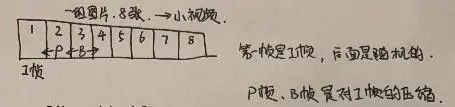 一组图片.8张.→小视频.
1 2 3 4 5 6 7 8
←P→←B→
I帧
第一帧是I帧,后面是随机的.
P帧、B帧是对I帧的压缩.